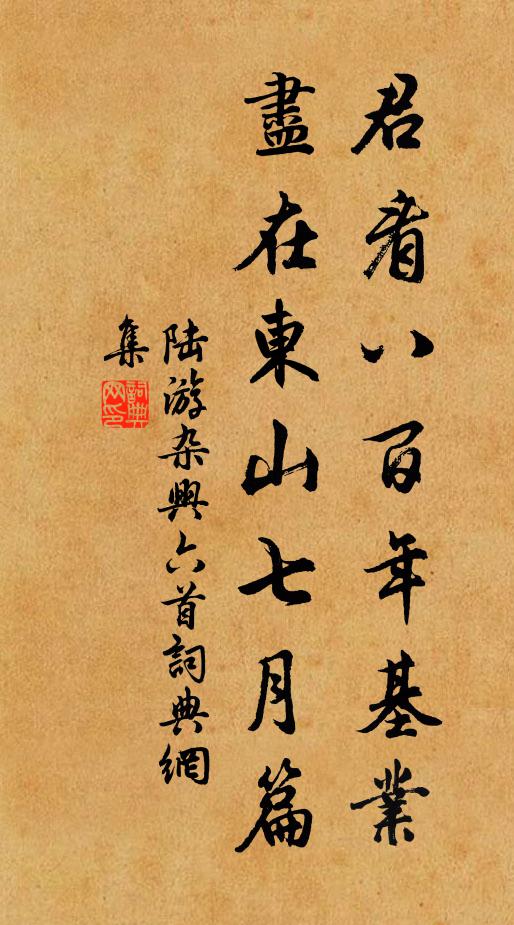 君看八百年基業
盡在東山七月篇
陸游杂興六首詞典網
集
詞典
网印